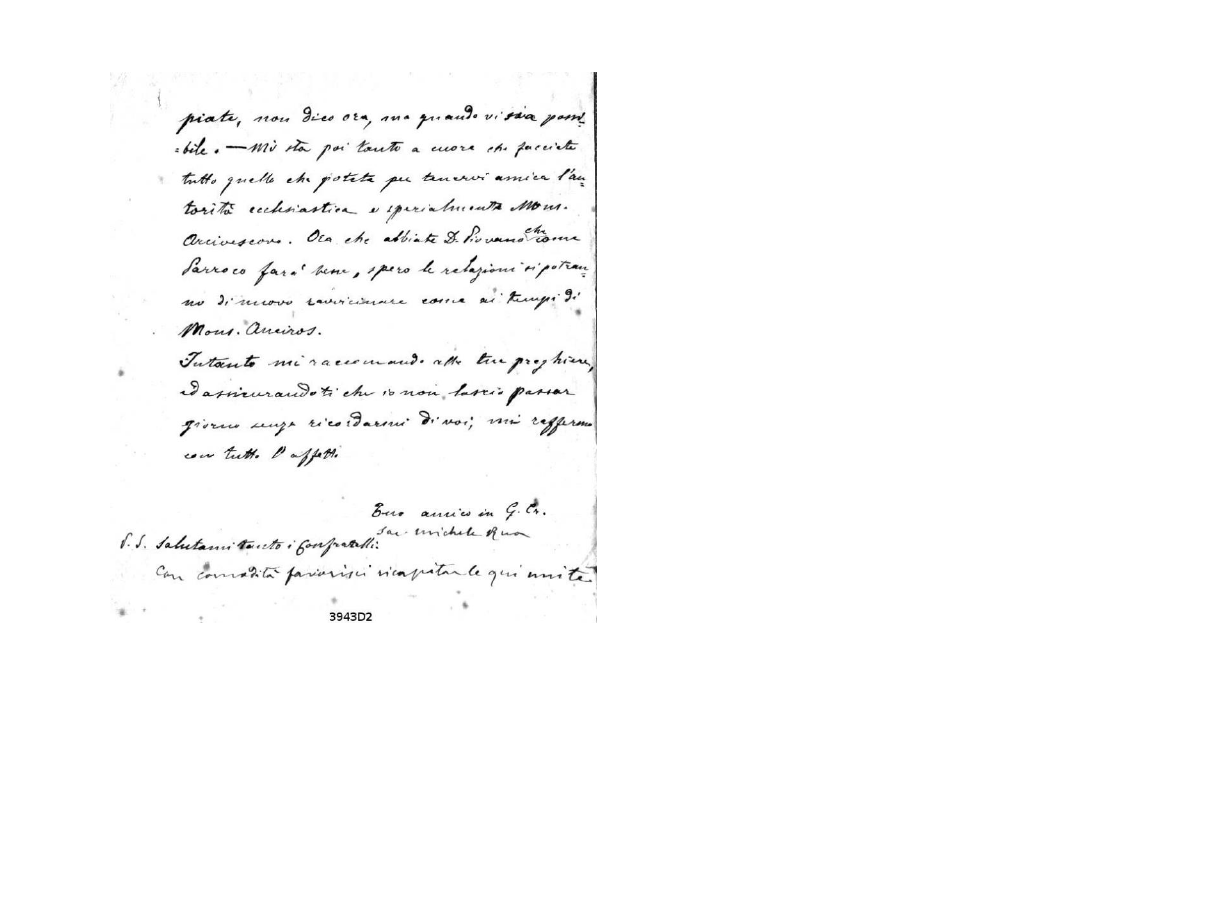 piate, non dico ora, ma quando vi sia possi-
=bile. — Mi sta poi tanto a cuore che facciate
tutto quello che potete per tenervi amica l'au=
torità ecclesiastica e specialmente Mons.
Arcivescovo. Ora che abbiate D. Piovano che come
Parroco farà bene, spero le relazioni si potran=
no di nuovo ravvicinare come ai tempi di
Mons. Aneiros.
Intanto mi raccomando alle tue preghiere,
ed assicurandoti che io non lascio passar
giorno senza ricordarmi di voi, mi raffermo
con tutto l'affetto
Tuo amico in G. Cr.
Sac. Michele Rua
P. S. Salutami tanto i Confratelli:
Con comodità favorisci ricapitar le qui unite
3943D2